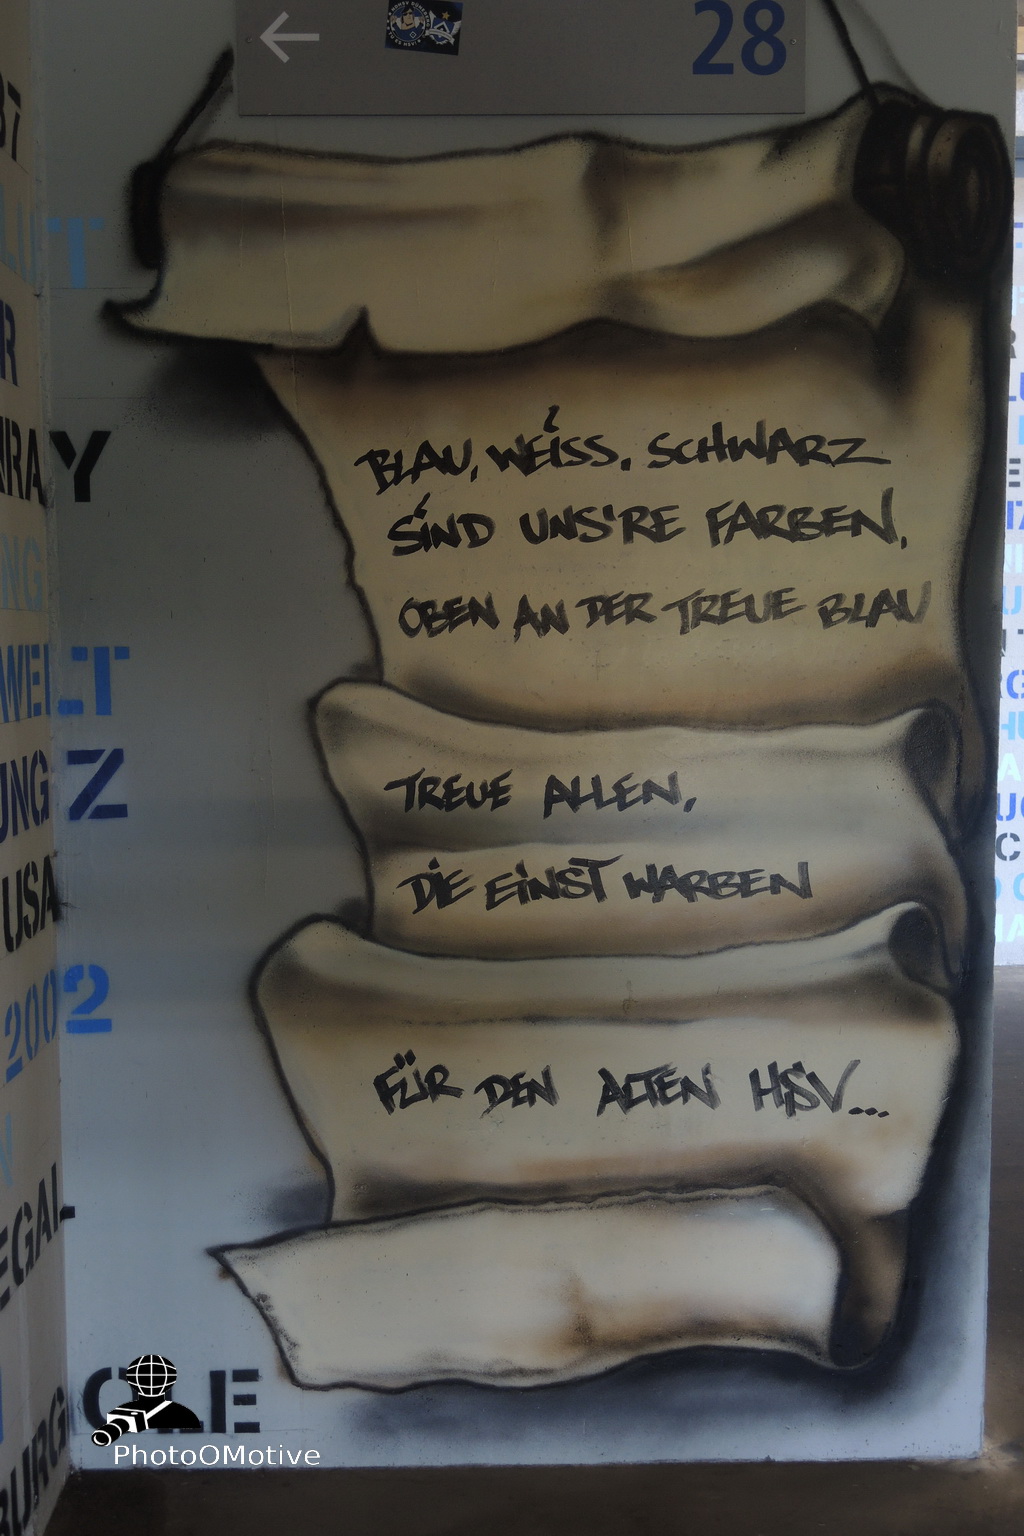 28
BLAU, WEISS, SCHWARZ
SIND UNS'RE FARBEN,
OBEN AN DER TREUE BLAU
TREUE ALLEN,
DIE EINST WARBEN
FÜR DEN ALTEN HSV...
WELT
UNG Z
USA
2002
EGAL
BURG
PhotoOMotive